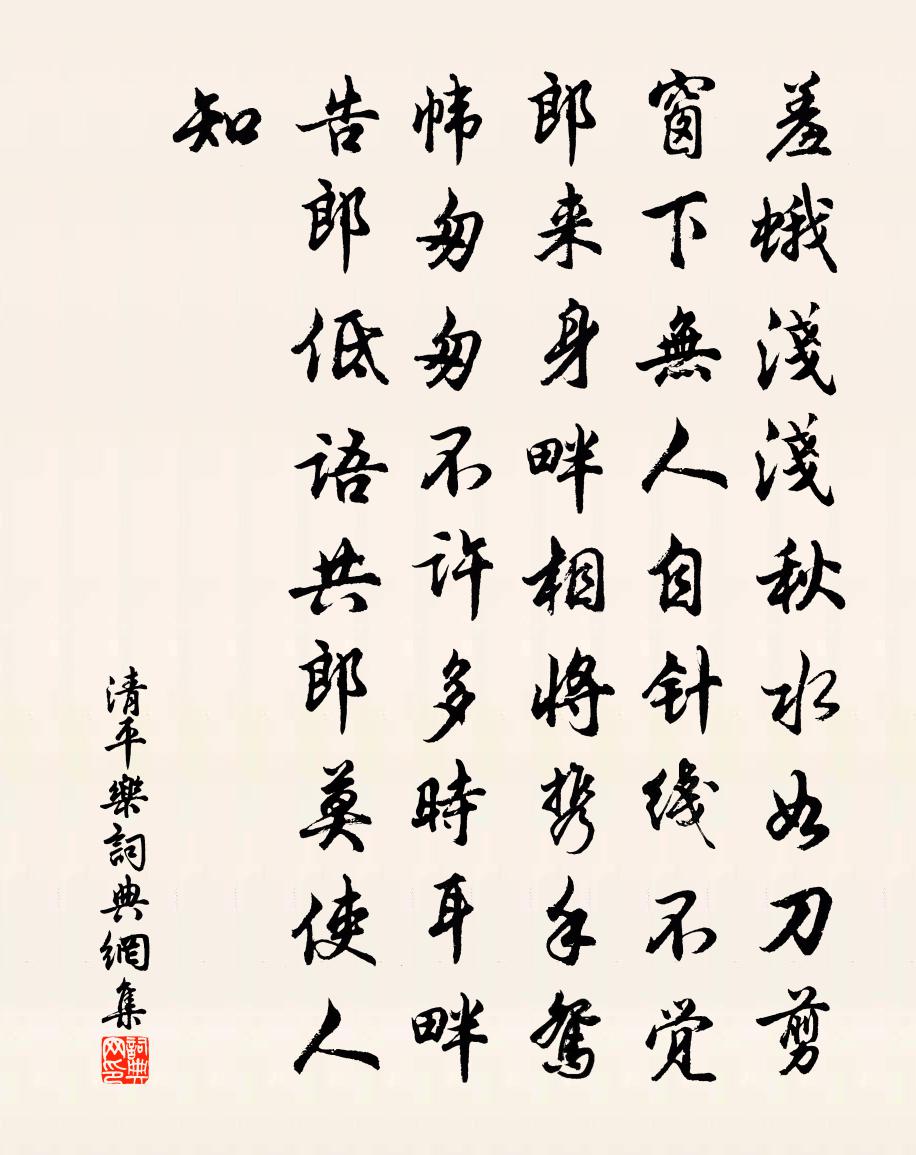 羞蛾淺淺秋水如刀剪
窗下無人自针线不觉
郎来身畔相將携手鴛
帏匆匆不许多時耳畔
告郎低语共郎莫使人
知
清平樂詞典網集
詞典网印